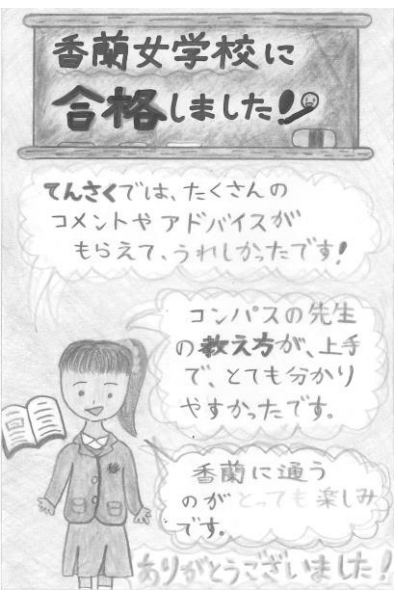 香蘭女学校に
合格しました!!
てんさくでは、たくさんの
コメントやアドバイスが
もらえて、うれしかったです!
コンパスの先生
の教え方が、上手
で、とても分かり
やすかったです。
香蘭に通う
のがとっても楽しみ
です。
ありがとうございました!